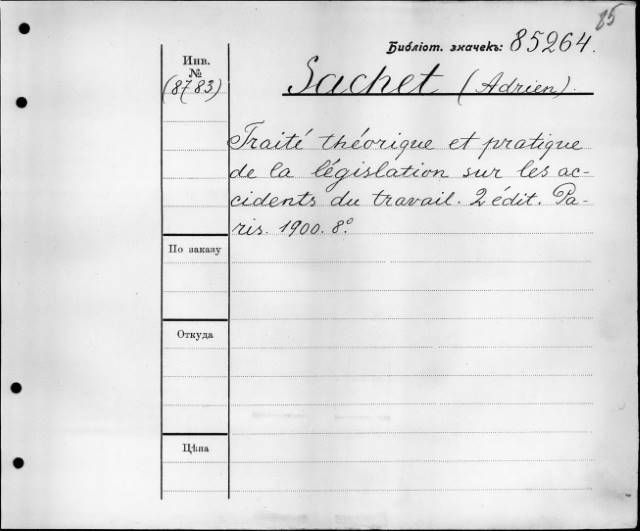 85
Библіот. значекъ: 85264.
Инв.
№
(8783)
Sachet (Adrien).
Traité théorique et pratique
de la législation sur les ac-
cidents du travail. 2 édit. Pa-
ris. 1900. 8°.
По заказу
Откуда
Цѣна